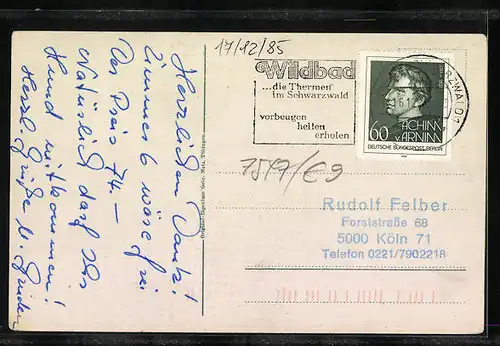 Herzlichen Dank!
Zimmer 6 wäre frei
Der Preis 74.–
Natürlich darf Ihr
Hund mitkommen!
Herzl. Grüße
17/12/85
Wildbad
...die Thermen
im Schwarzwald
vorbeugen
heilen
erholen
60 ACHIM
v. ARNIM
DEUTSCHE BUNDESPOST BERLIN
7517/€9
Rudolf Felber
Forststraße 68
5000 Köln 71
Telefon 0221/7902218